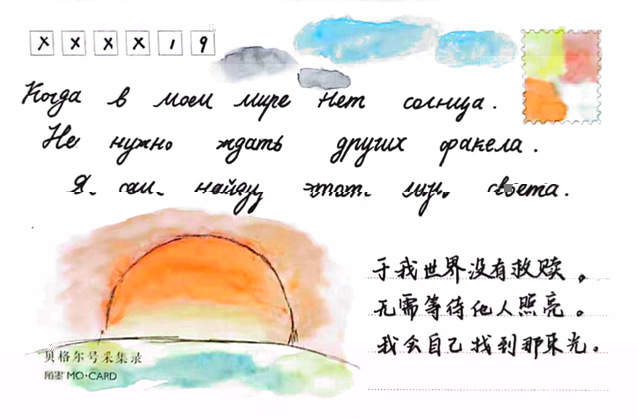 X X X X 1 9
Когда в моем мире нет солнца.
Не нужно ждать других факела.
Я найду света.
于我世界没有救赎。
无需等待他人照亮。
我会自己找到那束光。
贝格尔号采集录
陌墨 MO·CARD